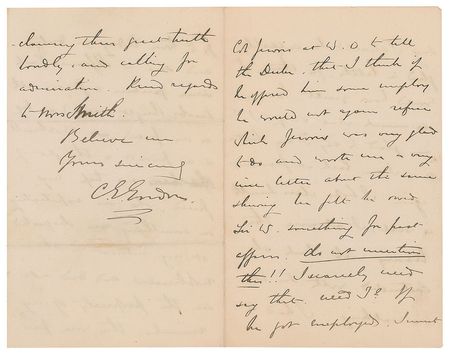 claiming their great truth
loudly, and calling for
admiration. Kind regards
to Mrs Smith.
Believe me
Yours sincerely
C. E. Gordon.
Col Jervois at W. O to tell
the Duke, that I think if
he offered him some employ
he would not again refuse
which Jervois was very glad
to do and wrote me a very
nice letter about the same
shewing he felt he owed
Sir W. something for past
offices. do not mention
this!! I scarcely need
say that. need I? If
he got employed. I must